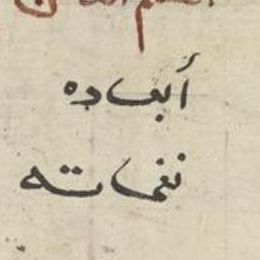 أبعاده
نغماته